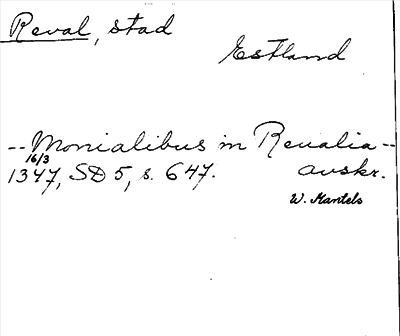 Reval, stad
Estland
-- Monialibus in Reualia --
16/3
1347, SD 5, s. 647. avskr.
W. Mantels